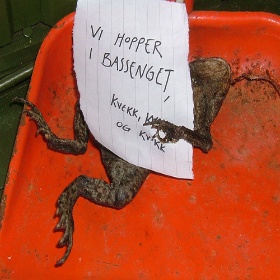 VI HOPPER
I BASSENGET,
KVEKK,
OG KVEKK